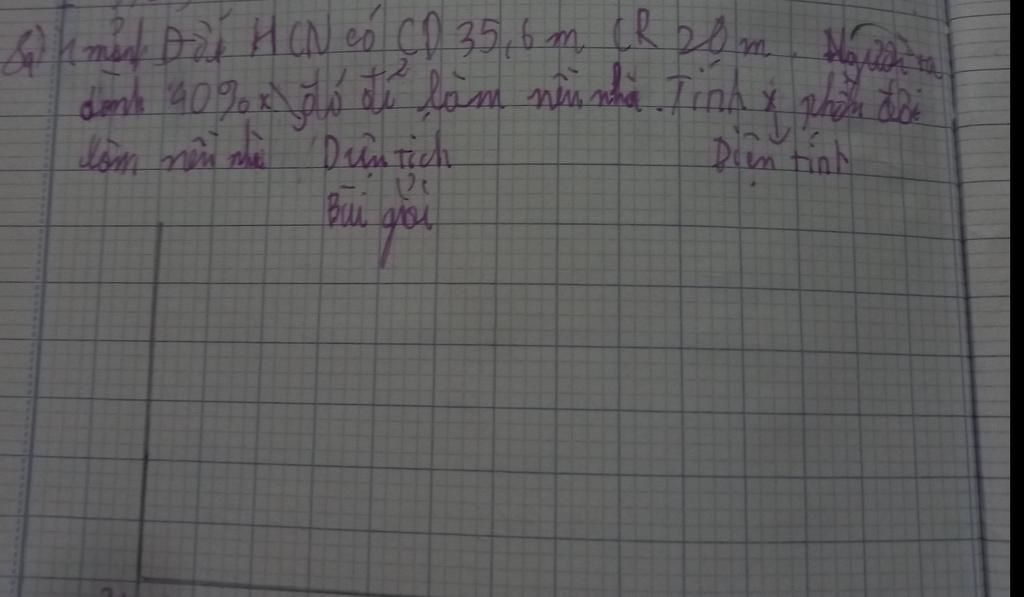 1 mảnh Đất HCN có CD 35,6 m CR 20 m. Người ta
dành 40% x đó để làm nền nhà. Tính x phần đất
làm nền nhà Diện tích Diện tính
Bài giải